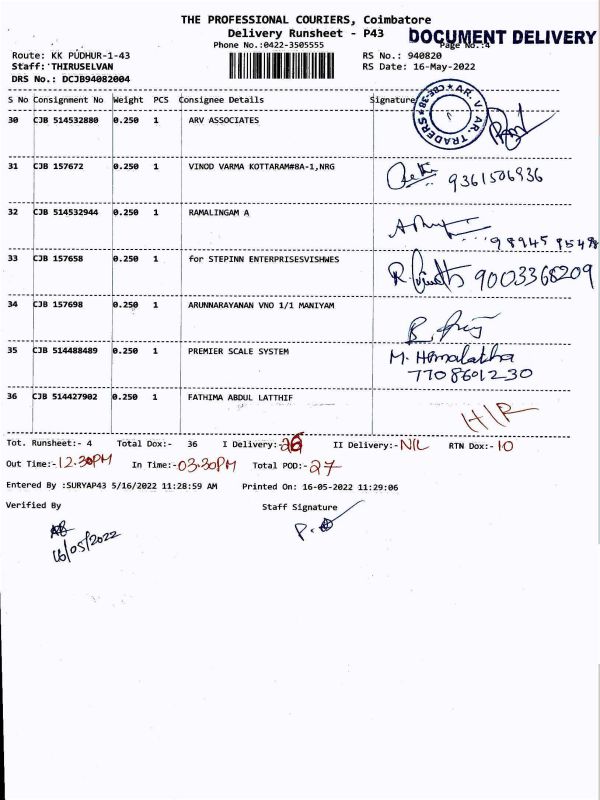 THE PROFESSIONAL COURIERS, Coimbatore
Delivery Runsheet - P43
DOCUMENT DELIVERY
Phone No.:0422-3505555
Page No.:4
Route: KK PUDHUR-1-43
RS No.: 940820
Staff: THIRUSELVAN
RS Date: 16-May-2022
DRS No.: DCJB94082004
S No Consignment No Weight PCS Consignee Details Signature
30 CJB 514532880 0.250 1 ARV ASSOCIATES
TRADERS
31 CJB 157672 0.250 1 VINOD VARMA KOTTARAM#8A-1,NRG
9361506936
32 CJB 514532944 0.250 1 RAMALINGAM A
33 CJB 157658 0.250 1 for STEPINN ENTERPRISESVISHWES
9003368209
34 CJB 157698 0.250 1 ARUNNARAYANAN VNO 1/1 MANIYAM
35 CJB 514488489 0.250 1 PREMIER SCALE SYSTEM
M. Hemalatha
7708601230
36 CJB 514427902 0.250 1 FATHIMA ABDUL LATTHIF
H/R
Tot. Runsheet:- 4 Total Dox:- 36 I Delivery:- 26 II Delivery:- NIL RTN Dox:- 10
Out Time:- 12.30PM In Time:- 03.30PM Total POD:- 27
Entered By :SURYAP43 5/16/2022 11:28:59 AM Printed On: 16-05-2022 11:29:06
Verified By Staff Signature
16/05/2022